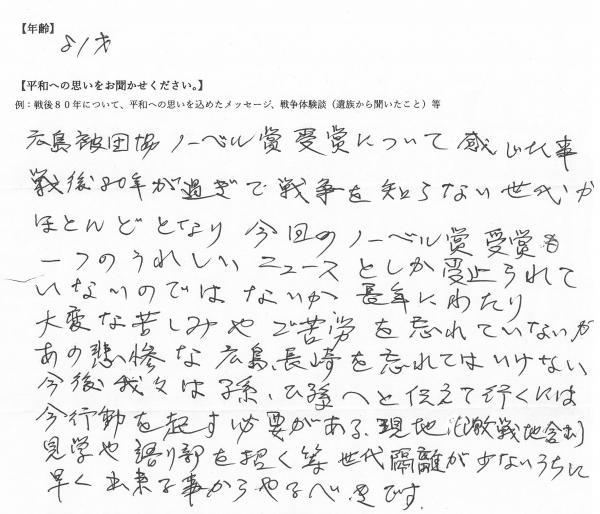 【年齢】
81才
【平和への思いをお聞かせください。】
例：戦後８０年について、平和への思いを込めたメッセージ、戦争体験談（遺族から聞いたこと）等
広島被団協ノーベル賞受賞について感じた事
戦後80年が過ぎて戦争を知らない世代が
ほとんどとなり今回のノーベル賞受賞も
一つのうれしいニュースとしか受止られて
いないのではないか 長年にわたり
大変な苦しみやご苦労を忘れていないが
あの悲惨な広島、長崎を忘れてはいけない
今後我々は子孫、ひ孫へと伝えて行くには
今行動を起す必要がある、現地（激戦地含む）
見学や語り部を招く等世代隔離が少ないうちに
早く出来る事からやるべきです。